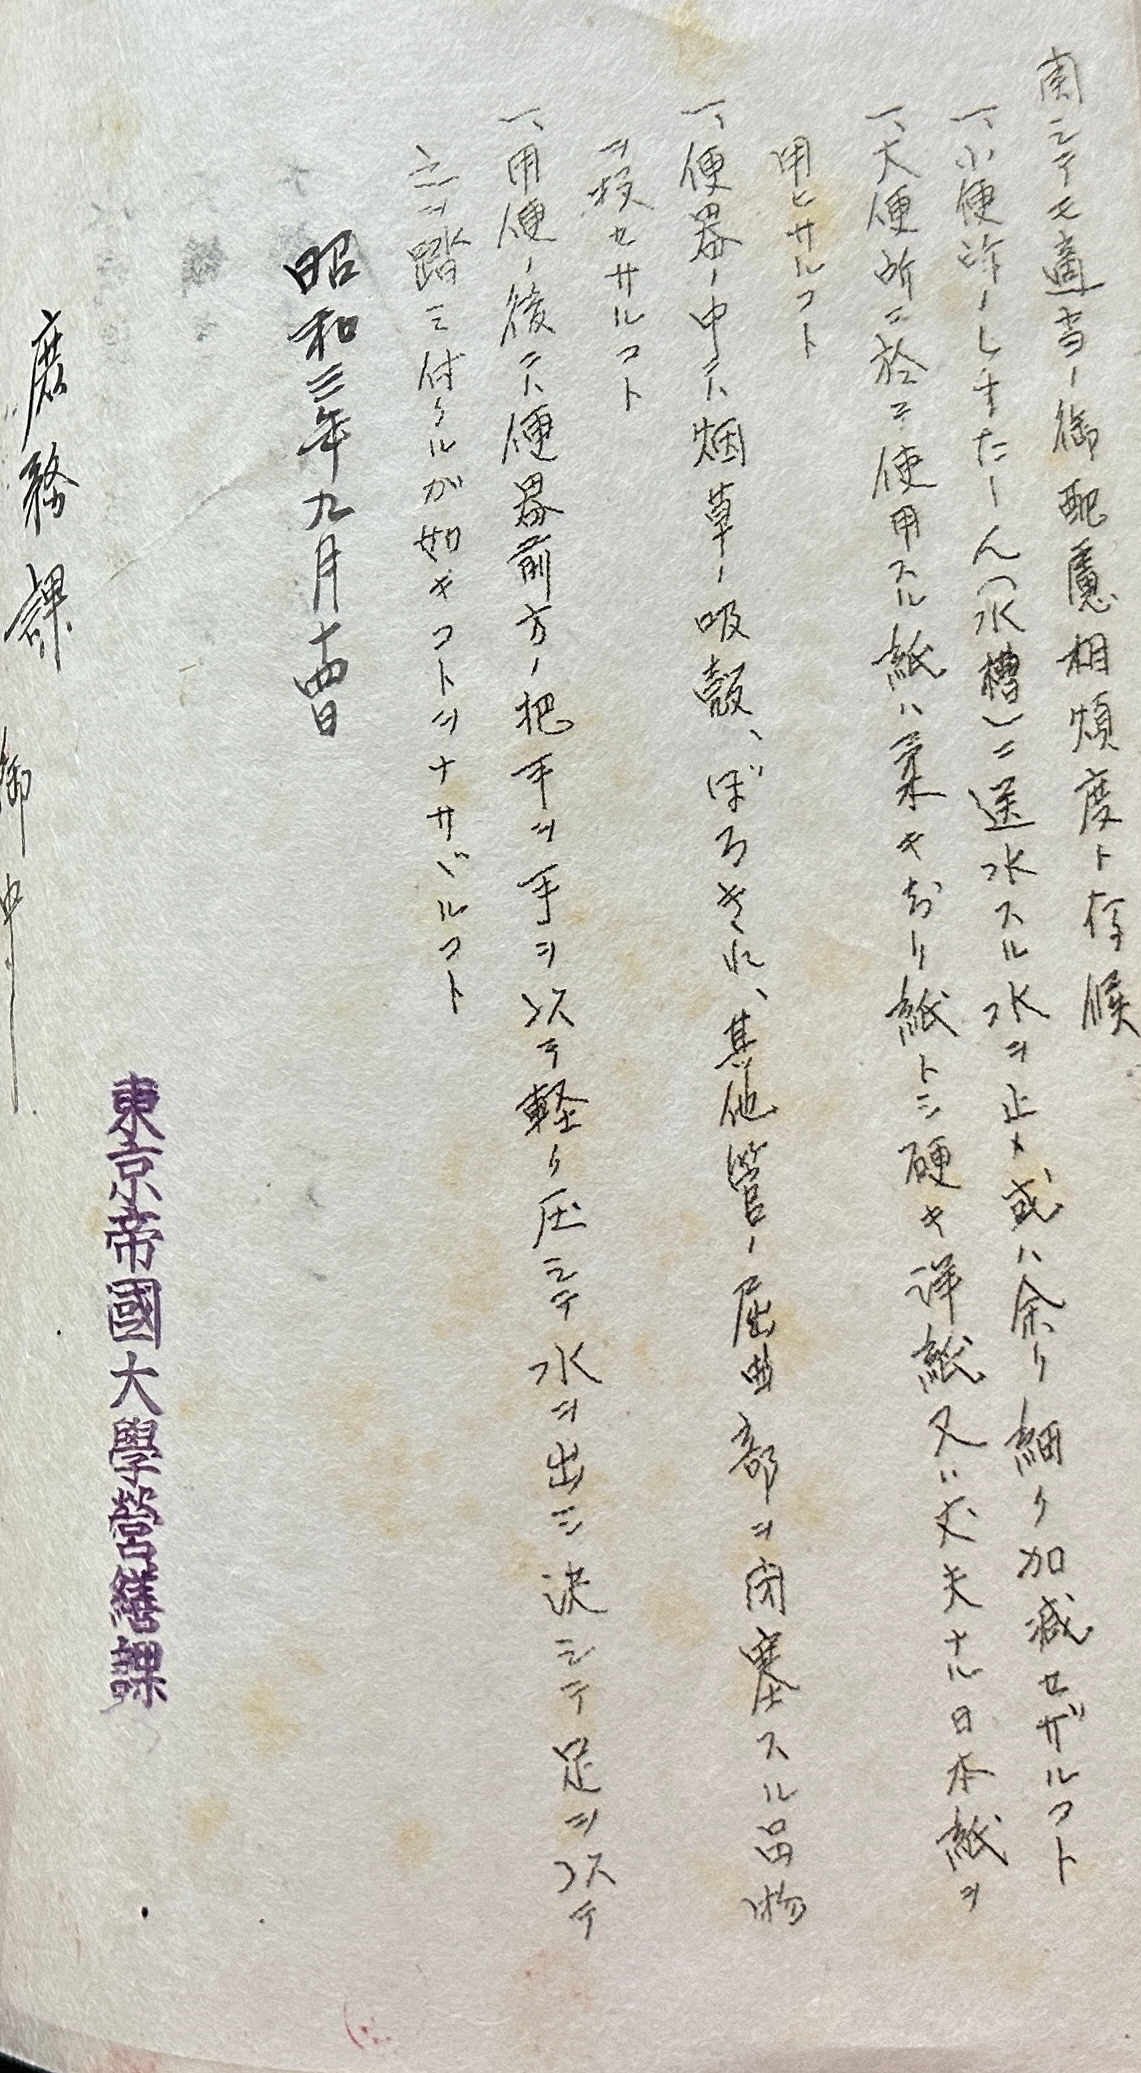 関シテモ適当ノ御配慮相煩度ト存候
一、小便所ノしすたーん(水槽)ニ送水スル水ヲ止メ或ハ余リ細ク加減セザルコト
一、大便所ニ於テ使用スル紙ハ柔キおり紙トシ硬キ洋紙又ハ丈夫ナル日本紙ヲ
用ヒサルコト
一、便器ノ中ニハ烟草ノ吸殻、ぼろきれ、其他管ノ屈曲部ヲ閉塞スル品物
ヲ投セサルコト
一、用便ノ後ニハ便器前方ノ把手ヲ手ヲ以テ軽ク圧シテ水ヲ出シ決シテ足ヲ以テ
之ヲ踏ミ付クルが如キコトヲナサヾルコト
昭和三年九月十四日
東京帝國大學營繕課
庶務課 御中